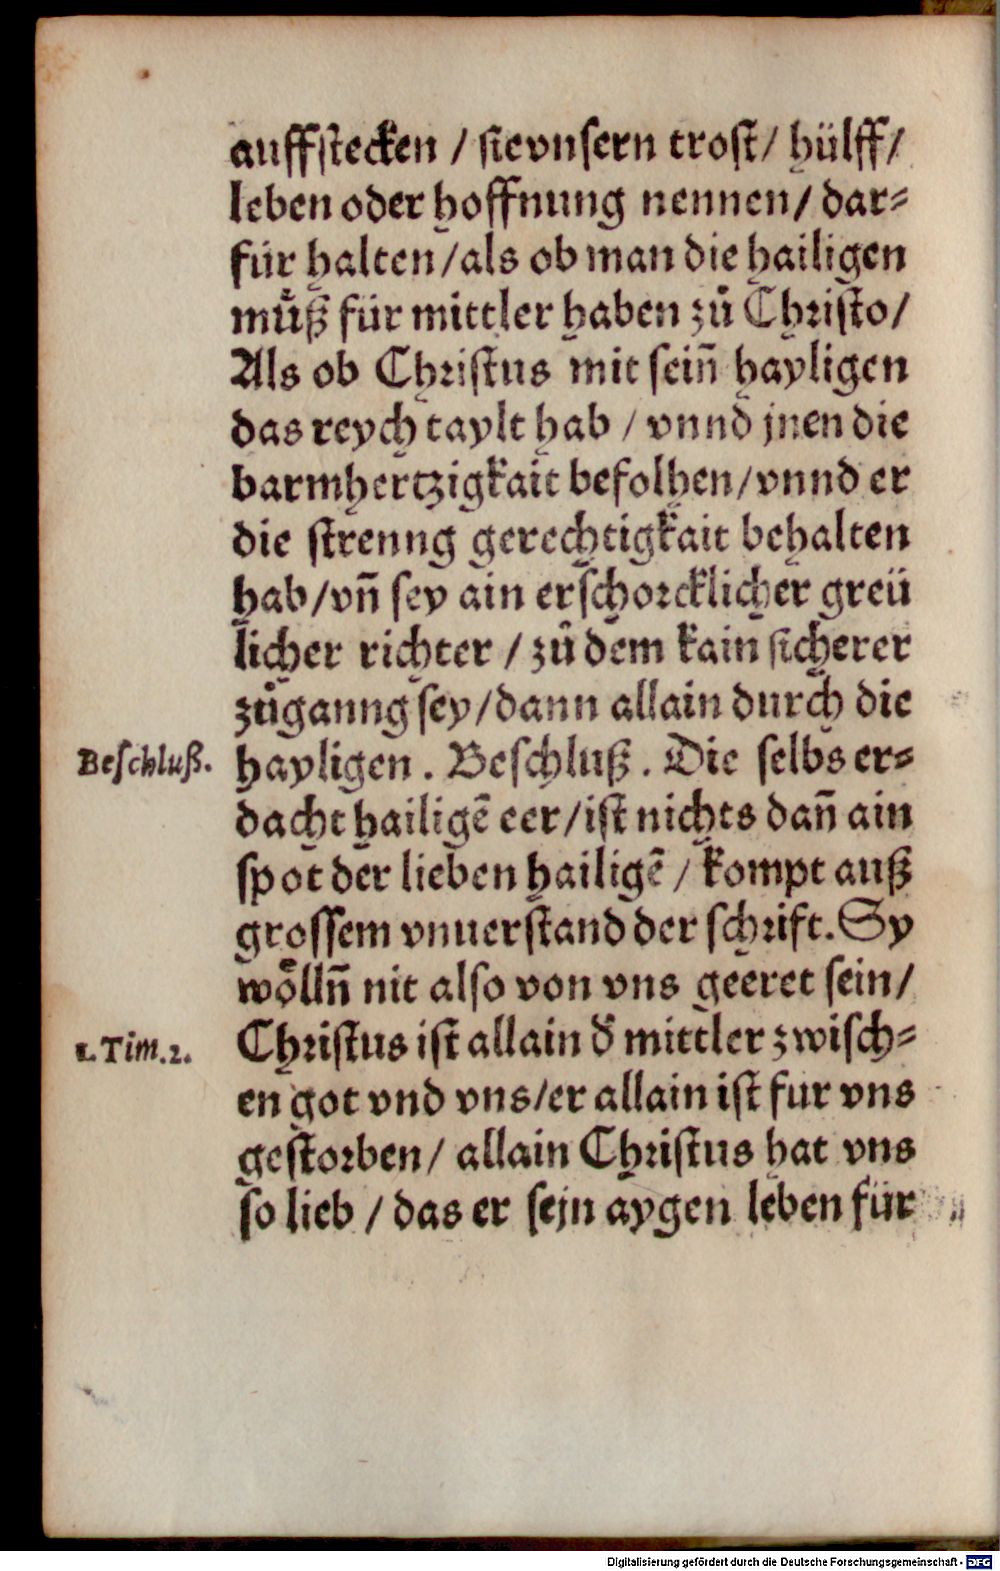 auffstecken / sie vnsern trost / hülff /
leben oder hoffnung nennen / dar⸗
für halten / als ob man die hailigen
muͤß für mittler haben zuͦ Christo /
Als ob Christus mit sein̄ hayligen
das reych taylt hab / vnnd jnen die
barmhertzigkait befolhen / vnnd er
die strenng gerechtigkait behalten
hab / vn̄ sey ain erschorcklicher greü
licher richter / zuͦ dem kain sicherer
zuͦganng sey / dann allain durch die
Beschluß. hayligen . Beschluß . Die selbs er⸗
dacht hailigē eer / ist nichts dan̄ ain
spot der lieben hailigē / kompt auß
grossem vnuerstand der schrift. Sy
woͤlln̄ nit also von vns geeret sein /
1. Tim. 2. Christus ist allain d̄ mittler zwisch⸗
en got vnd vns / er allain ist fur vns
gestorben / allain Christus hat vns
so lieb / das er sejn aygen leben für
Digitalisierung gefördert durch die Deutsche Forschungsgemeinschaft - DFG